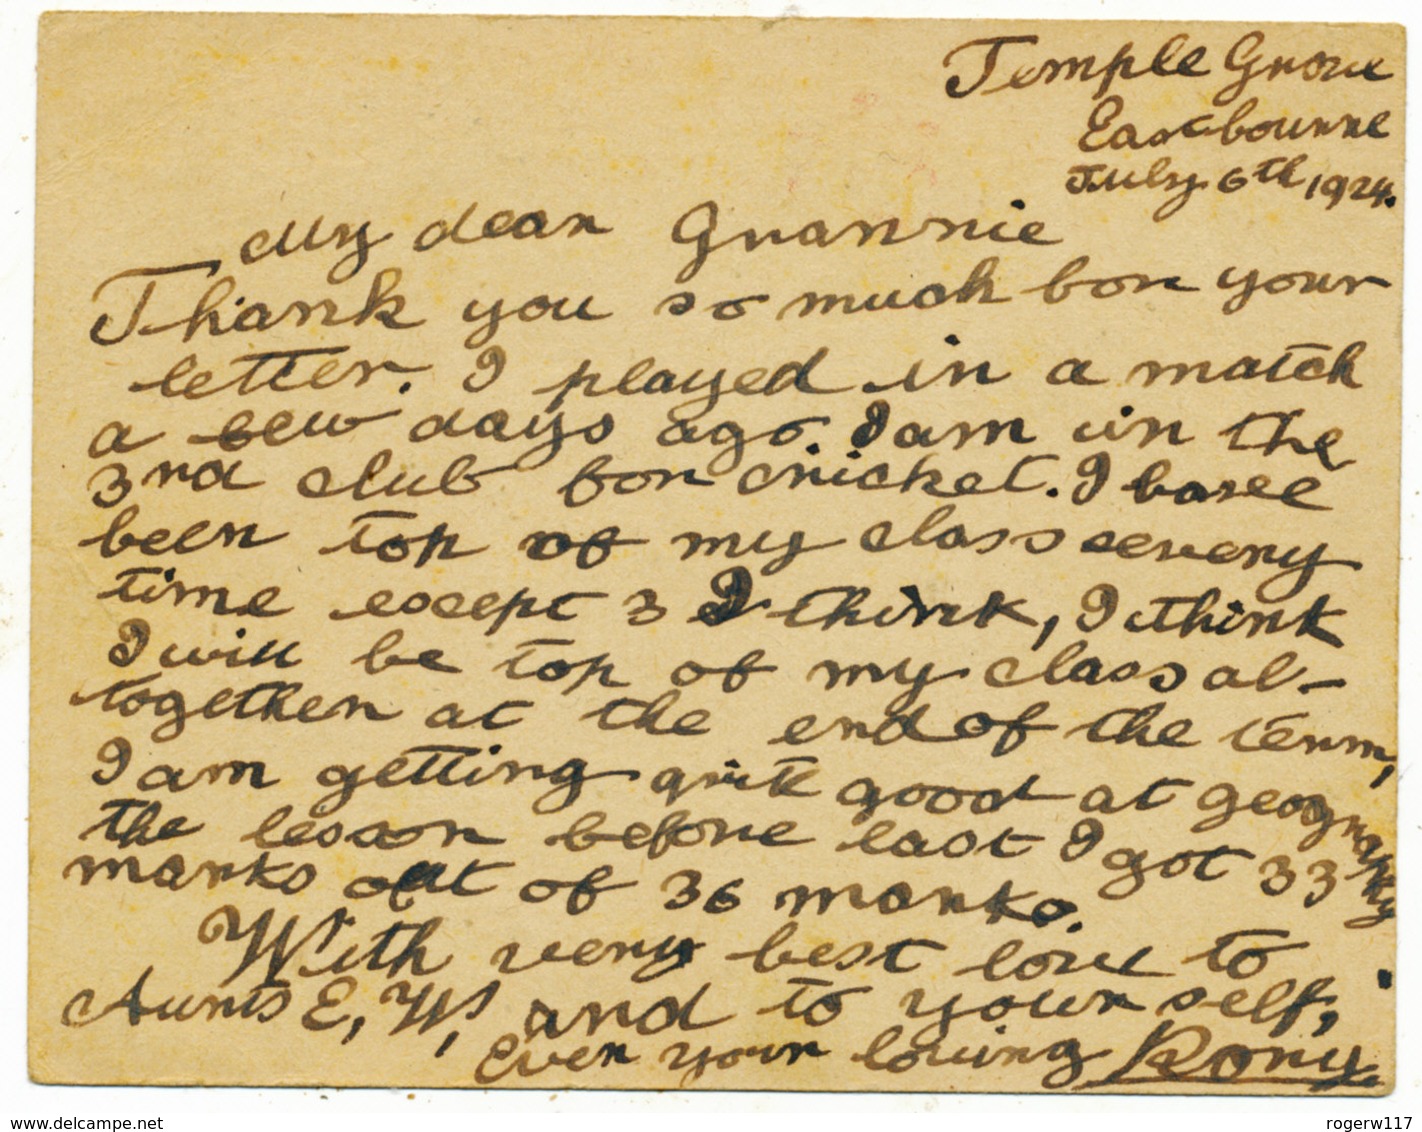 Temple Grove
Eastbourne
July 6th 1924.
My dear Grannie
Thank you so much for your
letter. I played in a match
a few days ago. I am in the
3rd club for cricket. I have
been top of my class every
time except 3 I think, I think
I will be top of my class al-
together at the end of the term,
I am getting quite good at geography
the lesson before last I got 33
marks out of 36 marks.
With very best love to
Aunts E, W, and to your self,
Ever your loving Rory.
www.delcampe.net
rogerw117